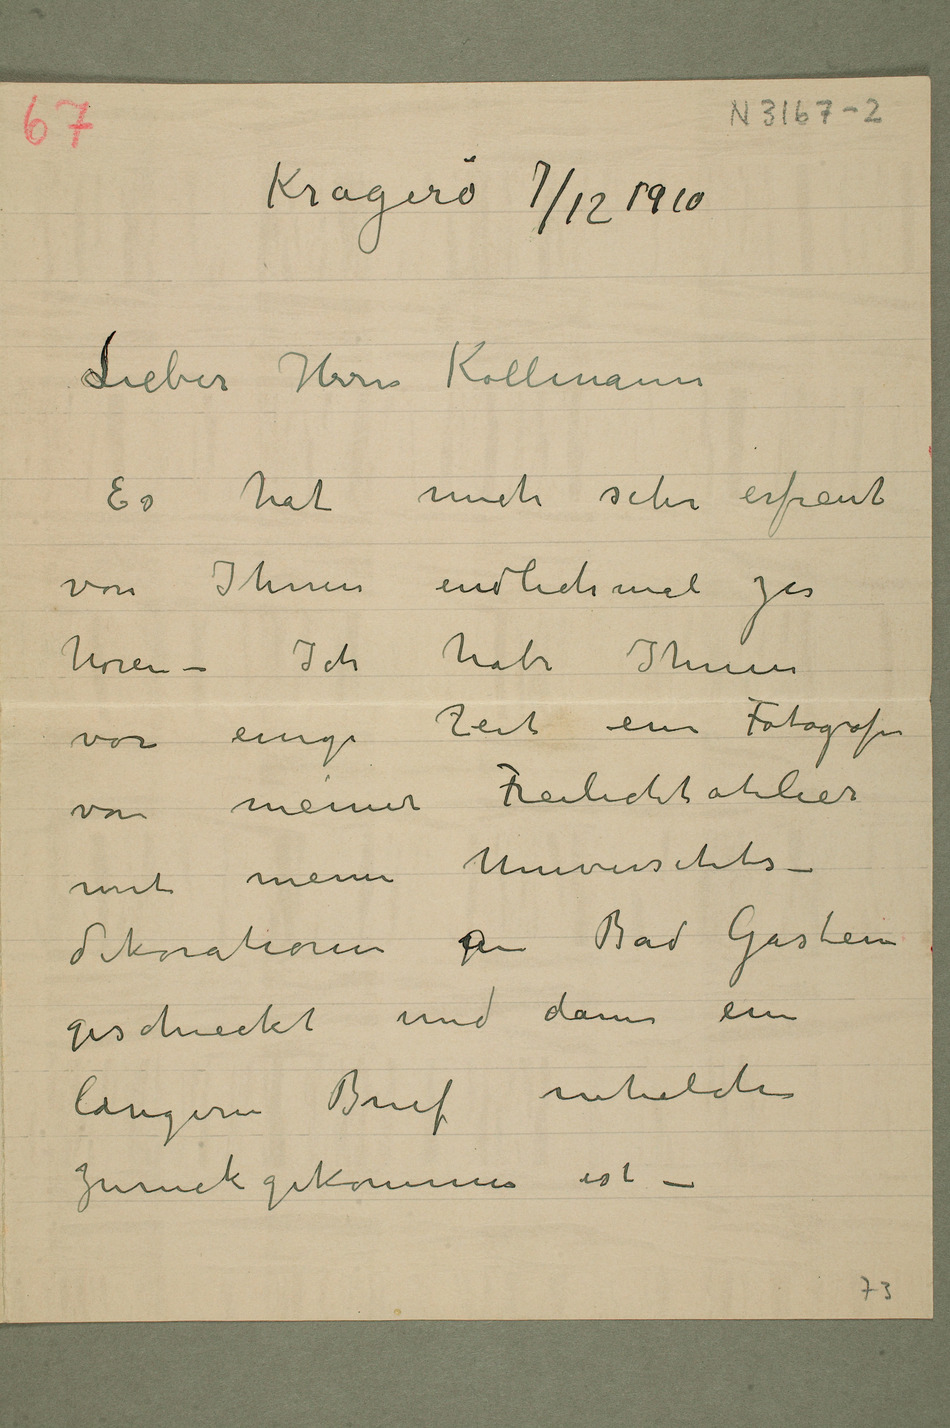 67
N 3167-2
Kragerö 7/12 1910
Lieber Herrn Kollmann
Es hat mich sehr erfreut
von Ihnen endlich mal zu
hören – Ich habe Ihnen
vor einige Zeit ein Fotografi
von meiner Freilichtatelier
mit meine Universitets–
dekorationen an Bad Gastein
geschickt und dann ein
längern Brief
zurückgekommen ist –
73